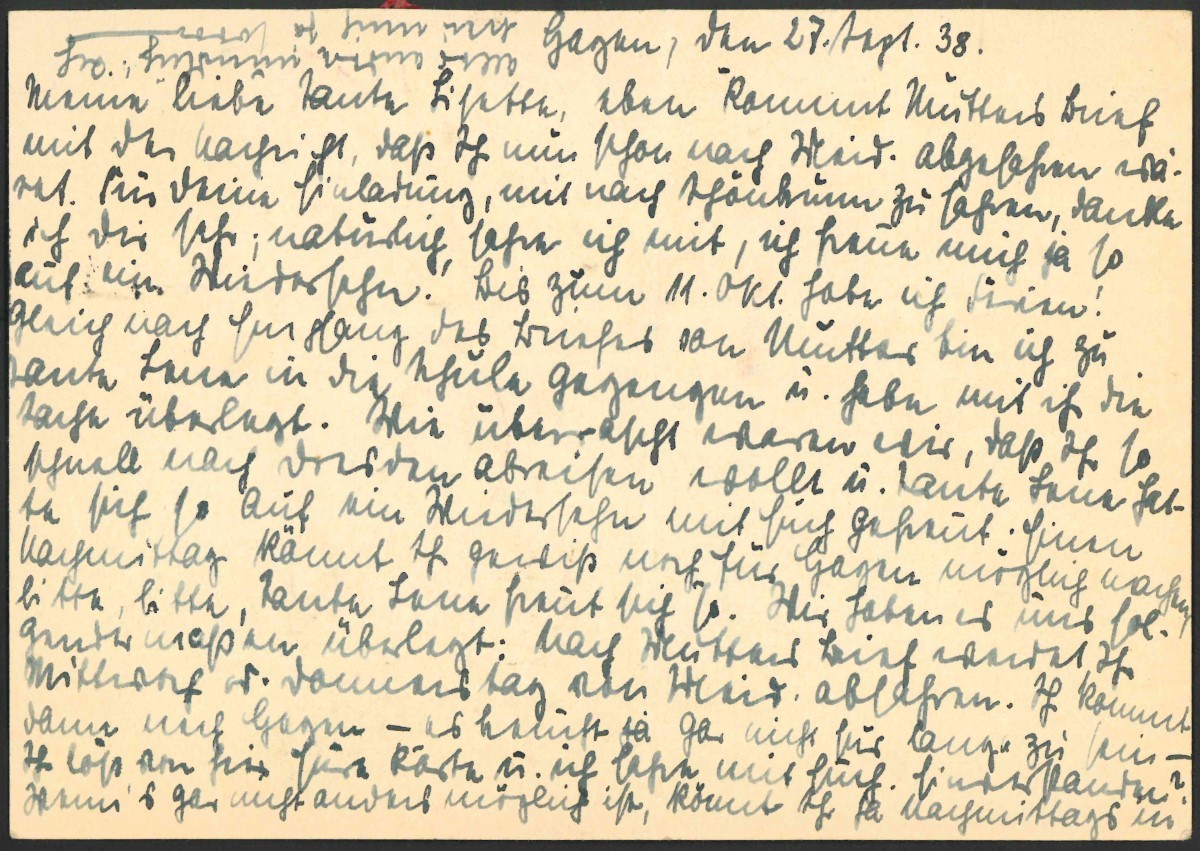 Hagen, den 27. Sept. 38.
Meine liebe Tante Lisette, eben kommt Mutters Brief
mit der Nachricht, daß Ihr nun schon nach Weid. abgefahren wä-
ret. Für Deine Einladung, mit nach Schönbrunn zu fahren, danke
ich Dir sehr; natürlich fahre ich mit, ich freue mich ja so
auf ein Wiedersehn. Bis zum 11. Okt. habe ich Ferien!
Gleich nach Empfang des Briefes von Mutter bin ich zu
Tante Lene in die Schule gegangen u. habe mit ihr die
Sache überlegt. Wie überrascht waren wir, daß Ihr so
schnell nach Dresden abreisen wollt u. Tante Lene hat-
te sich so auf ein Wiedersehn mit Euch gefreut. Einen
Nachmittag könnt Ihr gewiß noch für Hagen möglich machen,
bitte, bitte, Tante Lene freut sich so. Wir haben es uns fol-
gendermaßen überlegt: Nach Mutters Brief werdet Ihr
Mittwoch od. Donnerstag von Weid. abfahren. Ihr kommt
dann nach Hagen – es braucht ja gar nicht für lange zu sein –
Ihr löst von hier Eure Karte u. ich fahre mit Euch. Einverstanden?
Wenn's gar nicht anders möglich ist, könnt Ihr ja nachmittags in